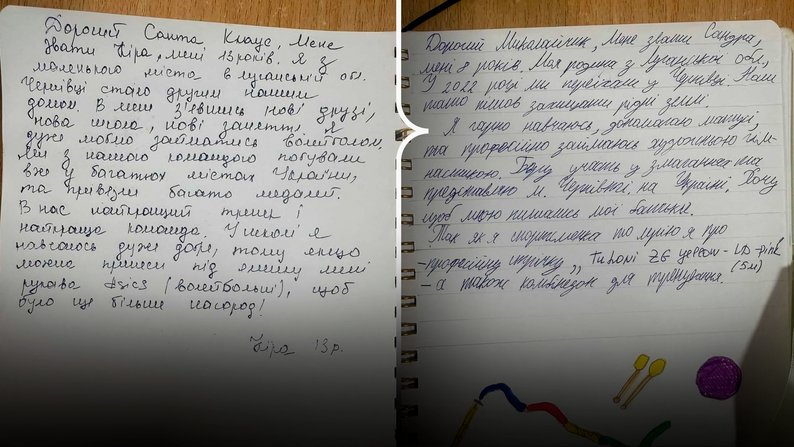 Дорогий Санта Клаус, Мене
звати Кіра, мені 13 років. Я з
маленького міста в луганській обл.
Чернівці стало другим нашим
домом. В мене з'явились нові друзі,
нова школа, нові заняття. Я
дуже люблю займатись волейболом.
Ми з нашою командою побували
вже у багатьох містах України,
та привезли багато медалей.
В нас найкращий тренер і
найкраща команда. У школі я
навчаюсь дуже добре, тому якщо
можна принеси під ялинку мені
рукава asics (волейбольні), щоб
було ще більше нагород!
Кіра 13 р.
Дорогий Миколайчик, Мене звати Сандра,
мені 8 років. Моя родина з Луганської обл,
У 2022 році ми приїхали у Чернівці.
тато пішов захищати рідні землі.
Я гарно навчаюсь, допомагаю матусі,
та професійно займаюсь художньою гім-
настикою. Беру участь у змаганнях та
представляю м. Чернівці, на Україні, Хочу
щоб мною пишались мої батьки.
Так як я спортсменка то мрію я про
-професійну стрічку „ Tuloni ZG yellow-LD-pink
(5м)
- а також комбінезон для тренування.